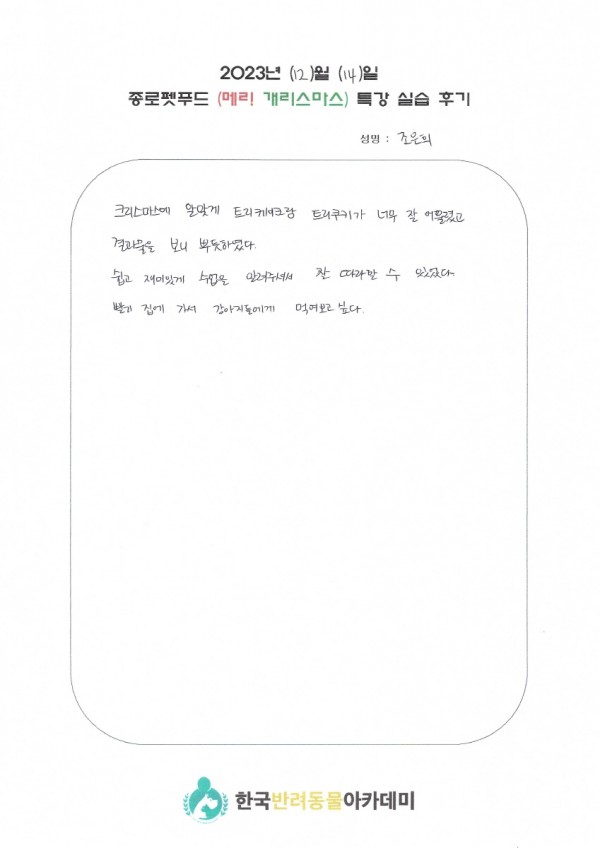 2023년 (12)월 (14)일
종로펫푸드 (메리! 개리스마스) 특강 실습 후기
성명 : 조은희
크리스마스에 알맞게 트리케이크랑 트리쿠키가 너무 잘 어울렸고
결과물을 보니 뿌듯하였다.
쉽고 재미있게 수업을 알려주셔서 잘 따라할 수 있었다.
빨리 집에 가서 강아지들에게 먹여보고 싶다.
한국반려동물아카데미